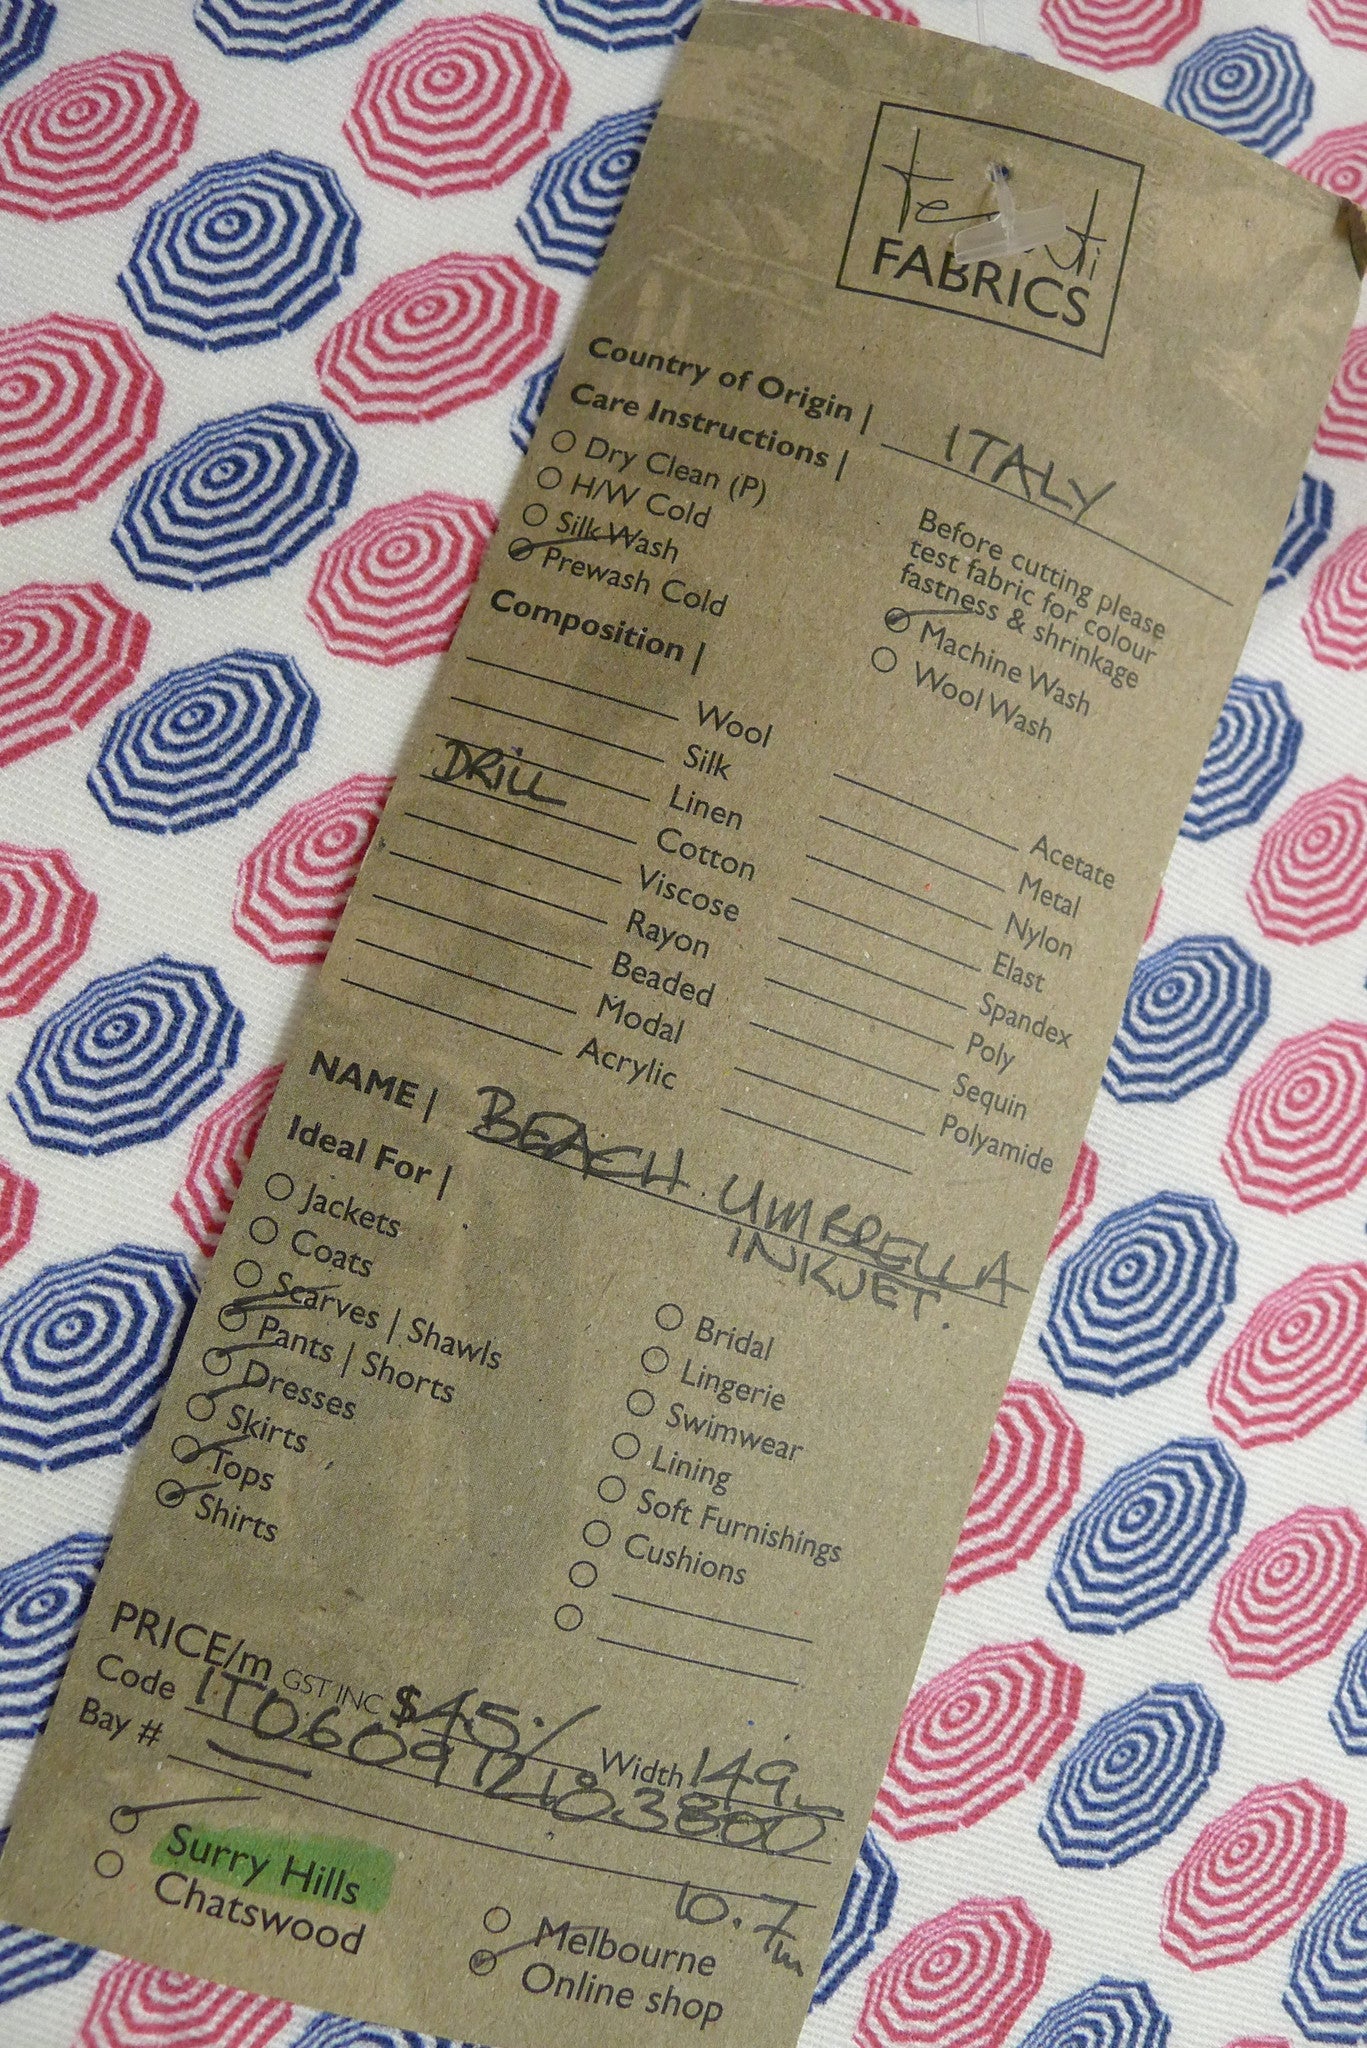 FABRICS
Country of Origin | ITALY
Care Instructions |
Dry Clean (P)
H/W Cold
Silk Wash
Prewash Cold
Before cutting please
test fabric for colour
fastness & shrinkage
Machine Wash
Wool Wash
Composition |
Wool
Silk
Linen
DRILL Cotton
Viscose
Rayon
Beaded
Modal
Acrylic
Acetate
Metal
Nylon
Elast
Spandex
Poly
Sequin
Polyamide
NAME | BEACH UMBRELLA
INKJET.
Ideal For |
Jackets
Coats
Scarves | Shawls
Pants | Shorts
Dresses
Skirts
Tops
Shirts
Bridal
Lingerie
Swimwear
Lining
Soft Furnishings
Cushions
PRICE/m GST INC $45. Width 149
Code IT0609121803800
Bay #
10.7m
Surry Hills
Chatswood
Melbourne
Online shop